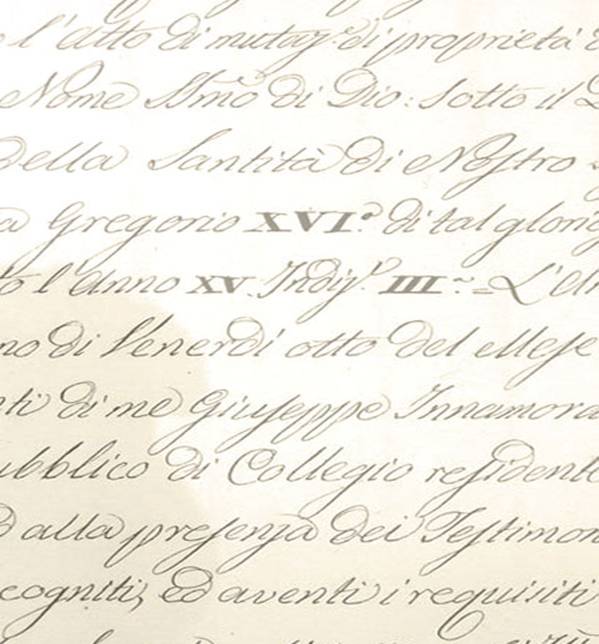 l'atto di mutaz.e di proprietà
Nome SSmo di Dio: Sotto il
della Santità di Noſtro
Gregorio XVI.º di tal glorio
l'Anno XV. Indiz.e III.ª = L'An
no di Venerdì otto del Meſe
nti di me Giuſeppe Innamora
ubblico di Collegio reſidente
alla preſenza dei Teſtimon
cogniti, ed aventi i requisiti